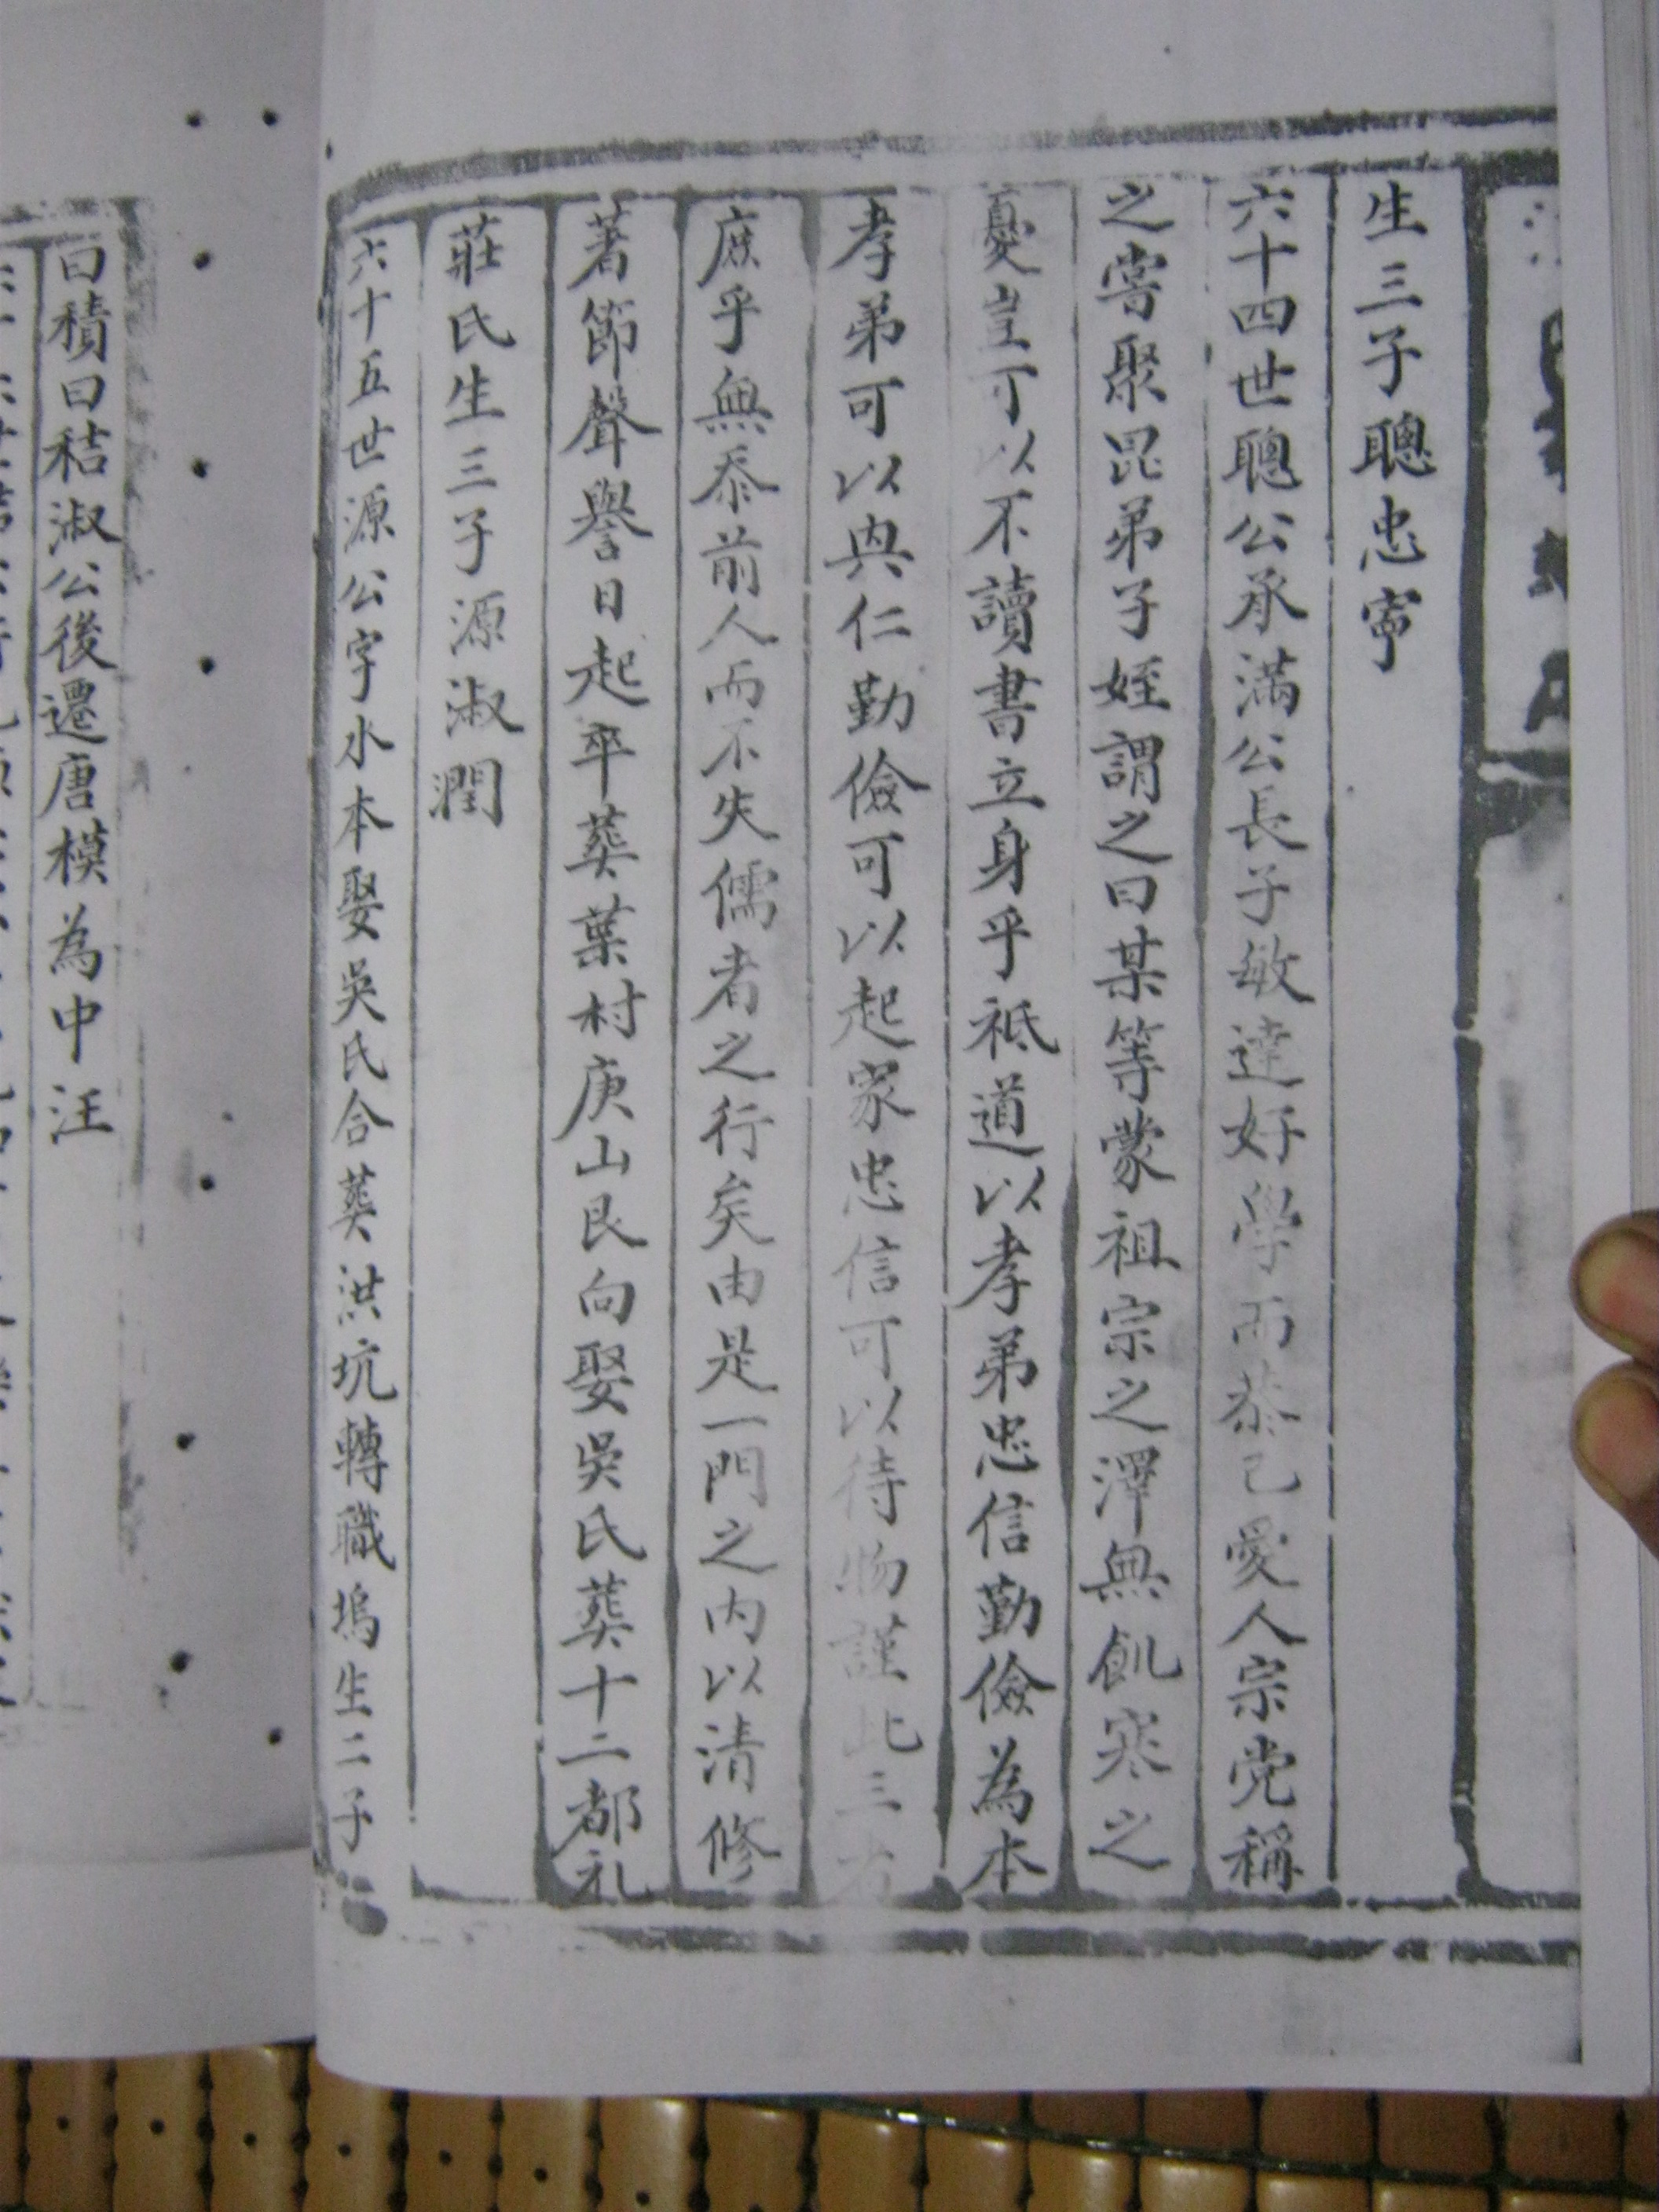 生三子聰忠寧
六十四世聰公承滿公長子敏達好學而恭己愛人宗党稱
之嘗聚昆弟子姪謂之曰某等蒙祖宗之澤無飢寒之
憂豈可以不讀書立身乎袛道以孝弟忠信勤儉為本
孝弟可以興仁勤儉可以起家忠信可以待物謹此三者
庶乎無忝前人而不失儒者之行矣由是一門之內以清修
著節聲譽日起卒葬葉村庚山艮向娶吳氏葬十二都礼
莊氏生三子源淑潤
六十五世源公字水本娶吳氏合葬洪坑轉職塢生二子
曰積曰秸淑公後遷唐模為中汪